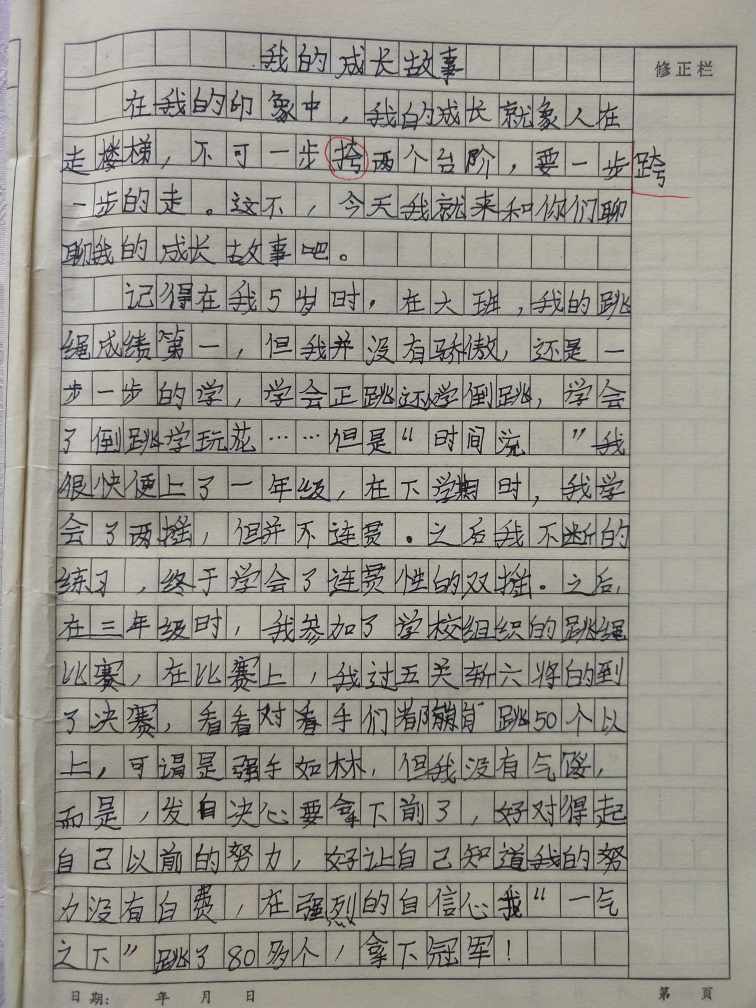 我的成长故事
修正栏
在我的印象中，我的成长就象人在
走楼梯，不可一步挎两个台阶，要一步
跨
一步的走。这不，今天我就来和你们聊
聊我的成长故事吧。
记得在我5岁时，在大班，我的跳
绳成绩第一，但我并没有骄傲，还是一
步一步的学，学会正跳还学倒跳，学会
了倒跳学玩花……但是“时间流 ”我
很快便上了一年级，在下学期时，我学
会了两摇，但并不连贯。之后我不断的
练习，终于学会了连贯性的双摇。之后，
在三年级时，我参加了学校组织的跳绳
比赛，在比赛上，我过五关斩六将的到
了决赛，看看对看手们都蹦 跳50个以
上，可谓是强手如林，但我没有气馁，
而是，发自决心要拿下前了，好对得起
自己以前的努力，好让自己知道我的努
力没有白费，在强烈的自信心我“一气
之下”跳了80多个，拿下冠军！
日期： 年 月 日
第 页